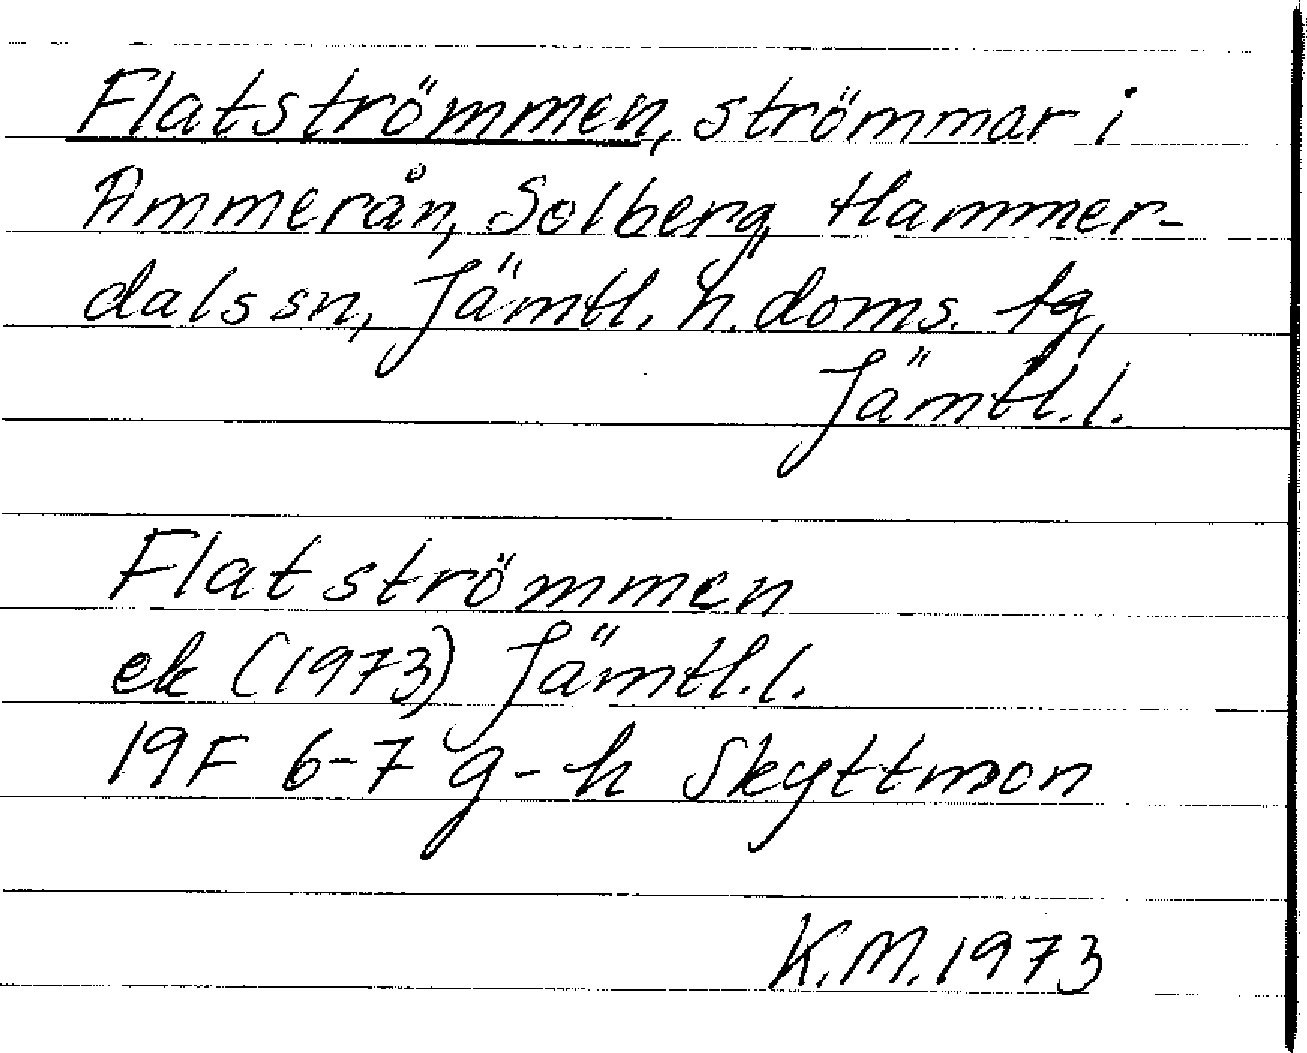 Flatströmmen, strömmar i
Ammerån, Solberg, Hammer-
dals sn, Jämtl. n. doms. tg,
Jämtl. l.
Flatströmmen
ek (1973) Jämtl. l.
19F 6-7 g-h Skyttmon
K.M. 1973